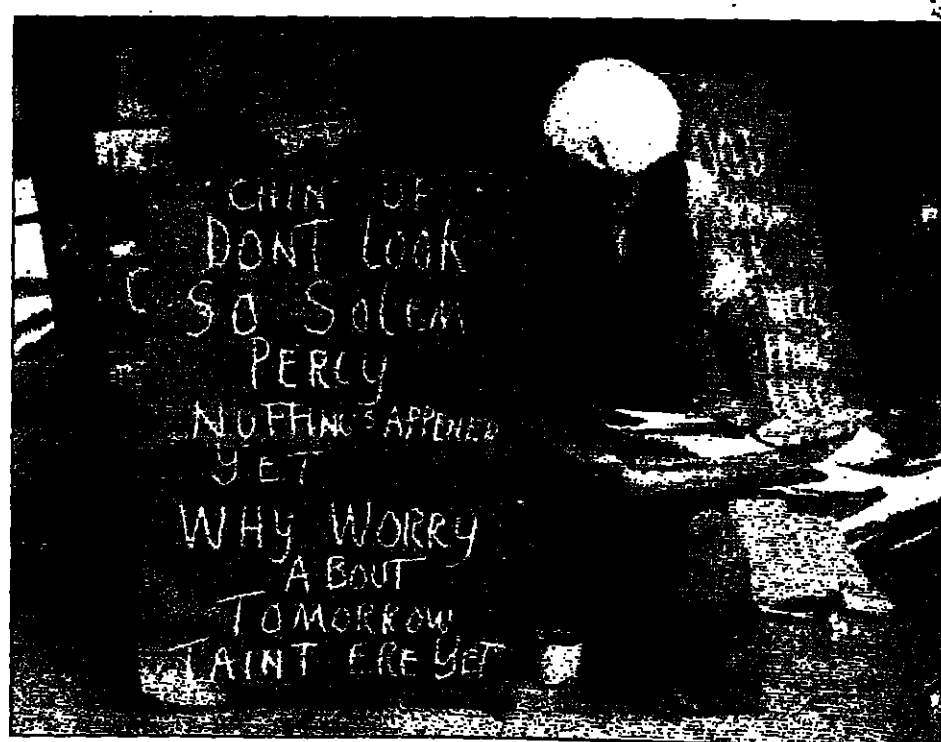 CHIN UP
DONT LOOK
SO SOLEM
PERCY
NUFFING'S APPENED
YET
WHY WORRY
ABOUT
TOMORROW
TAINT ERE YET